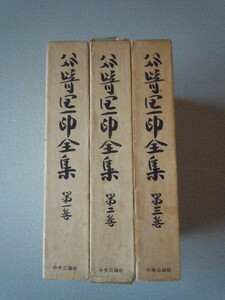 谷崎潤一郎全集
第一巻
中央公論社
谷崎潤一郎全集
第二巻
中央公論社
谷崎潤一郎全集
第三巻
中央公論社